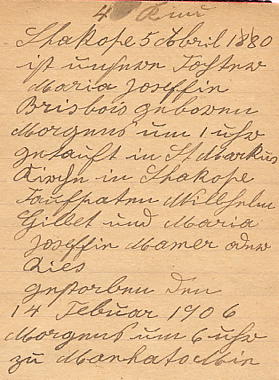 4 Kind
Shakope 5 Abril 1880
ist unsere Tochter
Maria Joseffin
Brisbois geboren
Morgens um 1 uhr
getauft in St Markus
Kirche in Shakope
Taufpaten Willhelm
Gillet und Maria
Joseffin Mamer oder
Ries
gestorben den
14 Februar 1906
Morgens um 6 uhr
zu Mankato Min